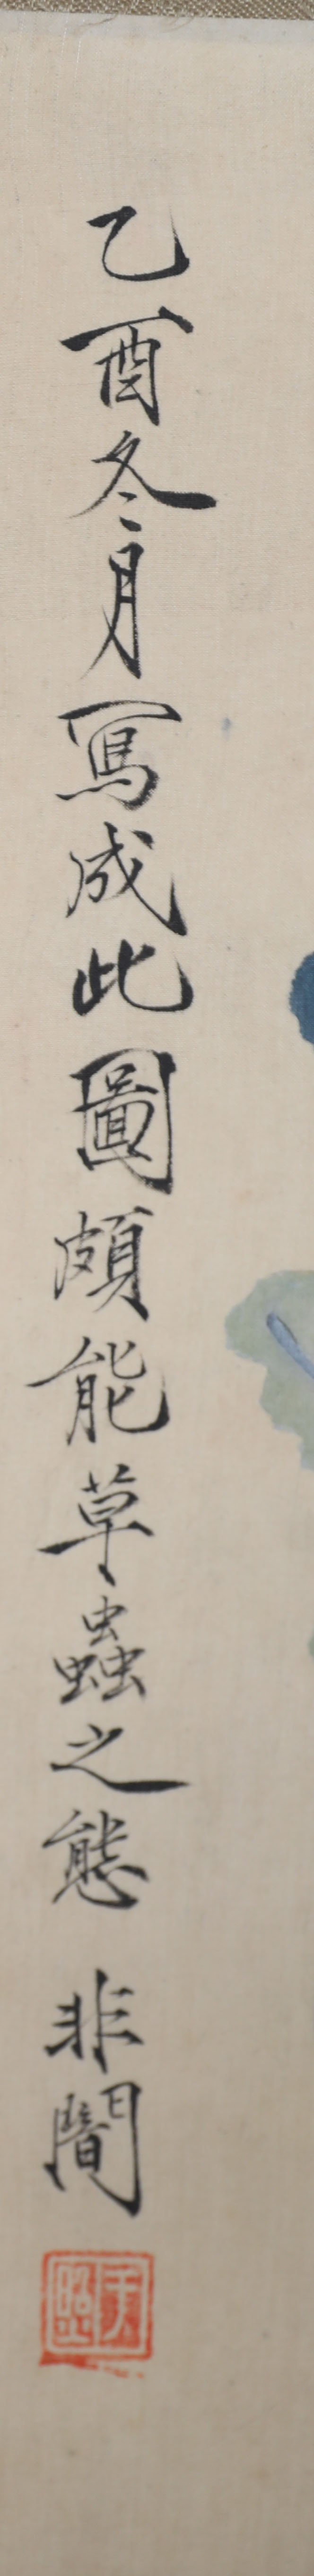 乙酉冬月寫成此圖頗能草蟲之態 非闇